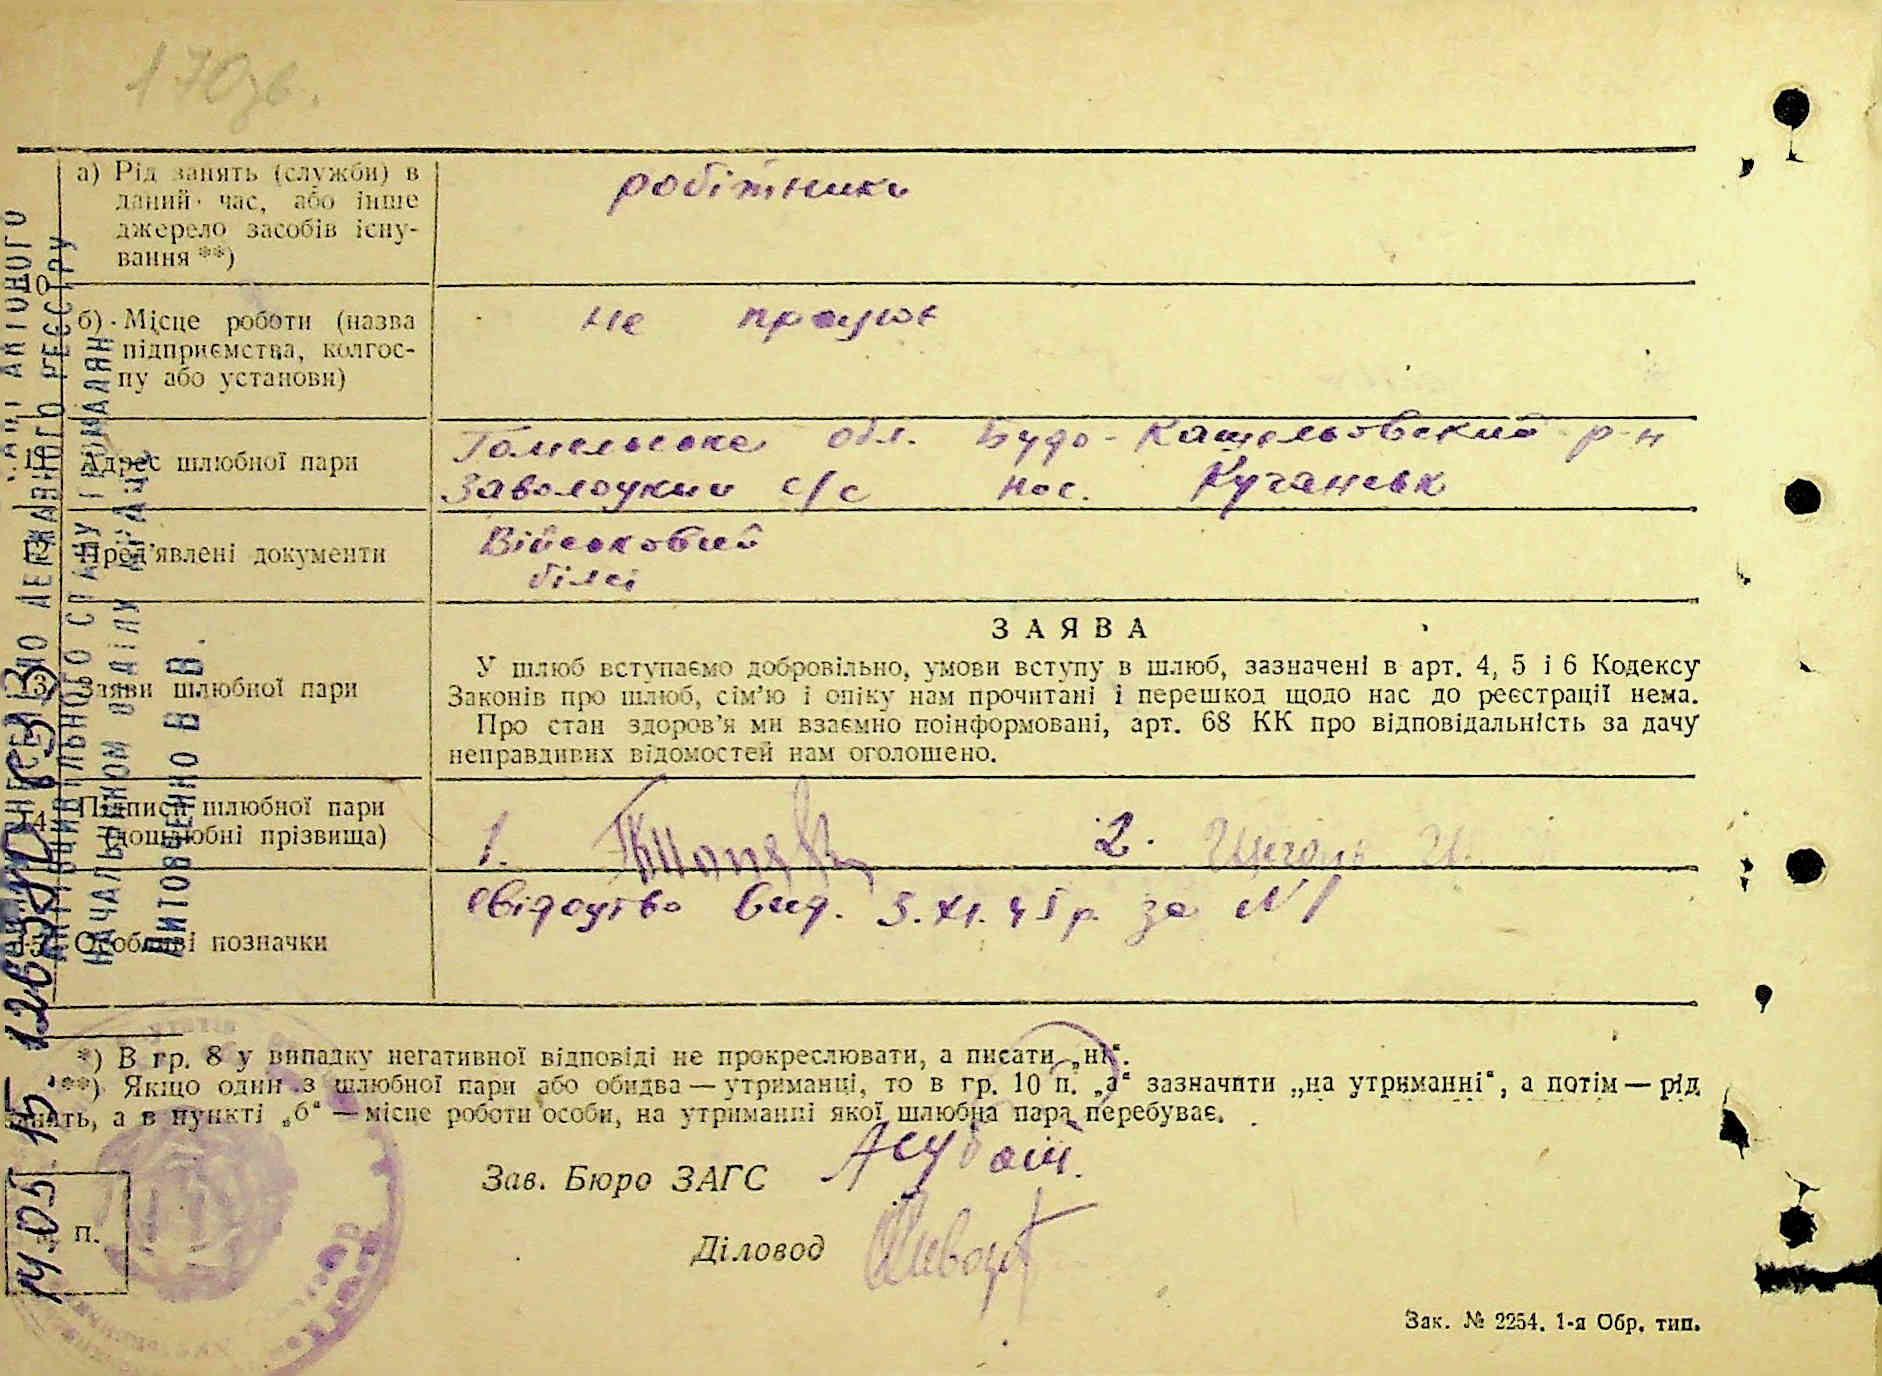 170зв.
а) Рід занять (служби) в
даний час, або інше
джерело засобів існу-
вання **)
робітники
10
б) Місце роботи (назва
підприємства, колгос-
пу або установи)
не працює
11 Адрес шлюбної пари
Гомельська обл. Будо-Кашельовский р-н
Заволоцкий с/с пос. Кучанськ
12 Пред'явлені документи
Військовий
білет
13 Заяви шлюбної пари
ЗАЯВА
У шлюб вступаємо добровільно, умови вступу в шлюб, зазначені в арт. 4, 5 і 6 Кодексу
Законів про шлюб, сім'ю і опіку нам прочитані і перешкод щодо нас до реєстрації нема.
Про стан здоров'я ми взаємно поінформовані, арт. 68 КК про відповідальність за дачу
неправдивих відомостей нам оголошено.
14 Підписи шлюбної пари
(дошлюбні прізвища)
1. 2.
15 Особливі позначки
свідоцтво вид. 3.XI.45 р. за №1
*) В гр. 8 у випадку негативної відповіді не прокреслювати, а писати „ні“.
**) Якщо один з шлюбної пари або обидва — утриманці, то в гр. 10 п. „а“ зазначити „на утриманні“, а потім — рід
занять, а в пункті „б“ — місце роботи особи, на утриманні якої шлюбна пара перебуває.
Зав. Бюро ЗАГС
Діловод
п.
Зак. № 2254. 1-я Обр. тип.
АКТОВОГО
ДЕРЖАВНОГО РЕЄСТРУ
ЦИВІЛЬНОГО СТАНУ ГРОМАДЯН
НАЧАЛЬНИКОМ ВІДДІЛУ
ЛИТОВЧЕНКО В. В.
14.05.15.